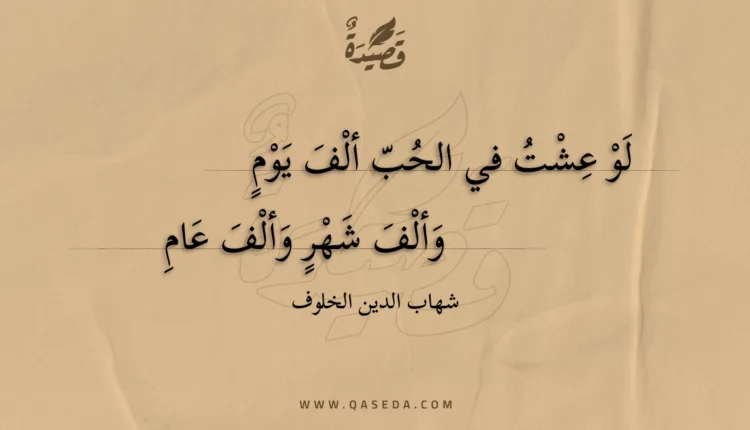 قَصِيدَةٌ
لَوْ عِشْتُ في الحُبّ ألْفَ يَوْمٍ
وَألْفَ شَهْرٍ وَألْفَ عَامِ
شهاب الدين الخلوف
WWW.QASEDA.COM